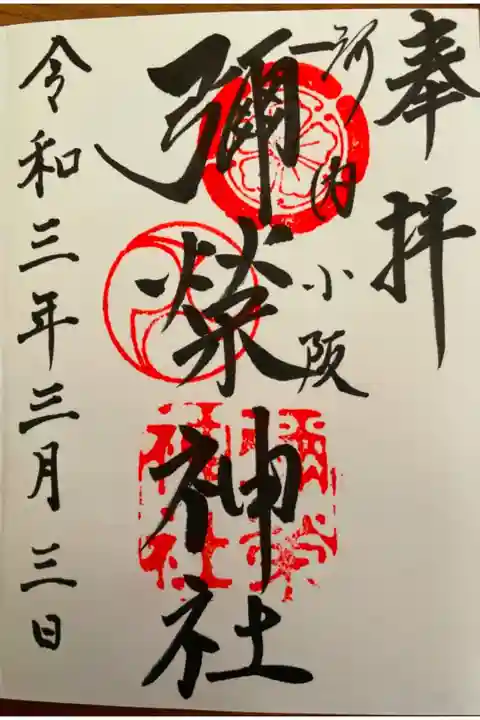 奉拝
河内
小阪
彌榮神社
彌榮
神社
令和三年三月三日